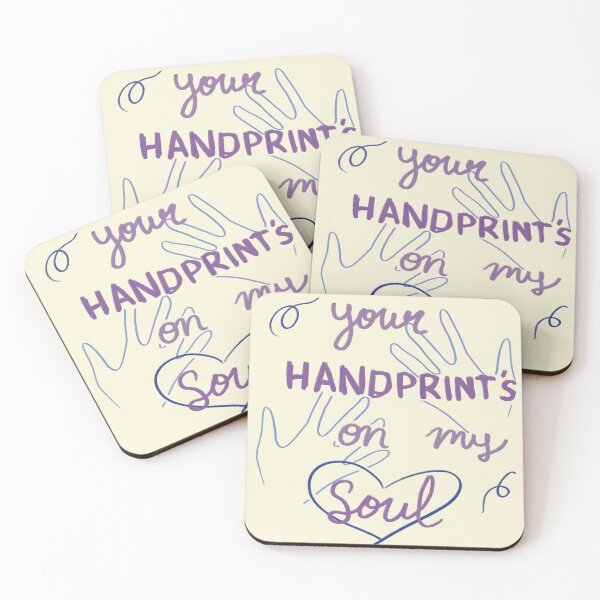 your
HANDPRINT's
m
your
HANDPRINT's
on my
your
HANDPRINT's
on my
Sou
your
HANDPRINT's
on my
Soul